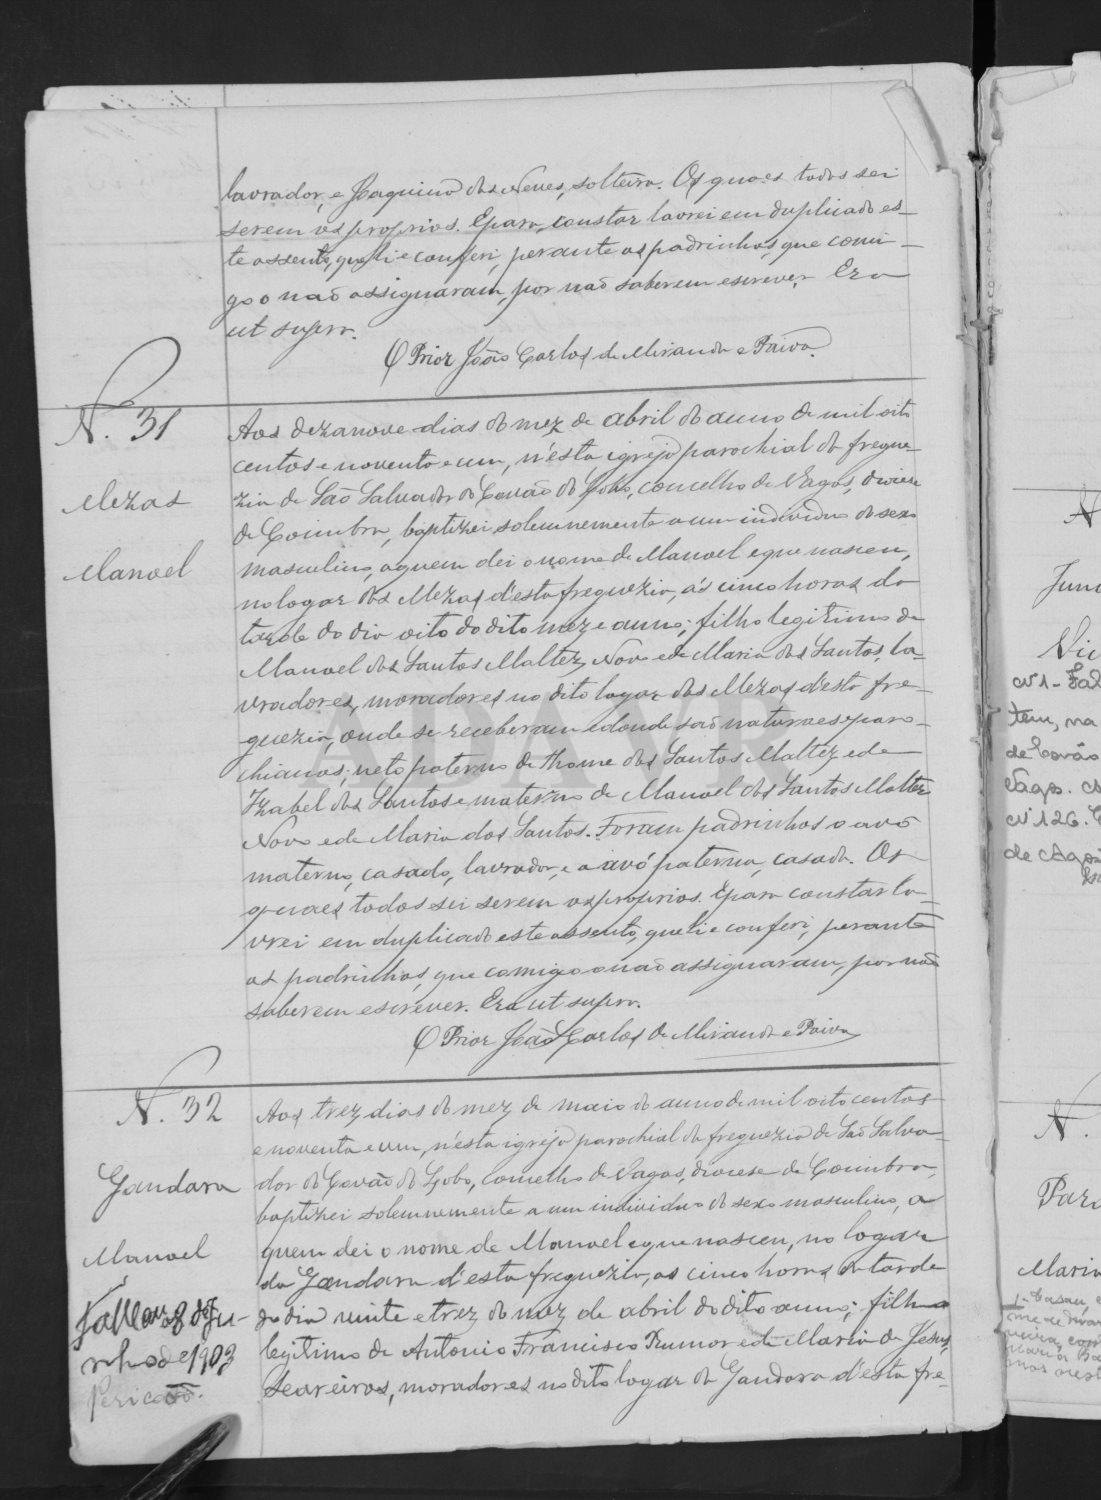 lavrador, e Joaquina das Neves, solteira. Os quaes todos sei
serem os proprios. E para constar lavrei em duplicado es-
te assento, que li e conferi, perante os padrinhos, que comi-
go o não assignaram, por não saberem escrever. Era
ut supra.
O Prior João Carlos de Miranda e Paiva.
N. 31
Mezas
Manoel
Aos dezanove dias do mez de abril do anno de mil oito
centos e noventa e um, n'esta igreja parochial da fregue-
zia de São Salvador do Covão do Lobo, concelho de Vagos, diocese
de Coimbra, baptizei solemnemente a um individuo do sexo
masculino, a quem dei o nome de Manoel e que nasceu,
no logar das Mezas d'esta freguezia, ás cinco horas da
tarde do dia oito do dito mez e anno; filho legitimo de
Manoel dos Santos Maltez Novo e de Maria dos Santos, la-
vradores, moradores no dito logar das Mezas d'esta fre-
guezia, onde se receberam e donde são naturaes e paro-
chianos; neto paterno de Thome dos Santos Maltez e de
Izabel dos Santos e materno de Manoel dos Santos Maltez
Novo e de Maria dos Santos. Foram padrinhos o avô
materno, casado, lavrador, e a avó paterna, casada. Os
quaes todos sei serem os proprios. E para constar la-
vrei em duplicado este assento, que li e conferi, perante
os padrinhos, que comigo o não assignaram, por não
saberem escrever. Era ut supra.
O Prior João Carlos de Miranda e Paiva
N. 32
Gandara
Manoel
Falleceu 8 de Ju-
nho de 1903
Aos trez dias do mez de maio do anno de mil oito centos
e noventa e um, n'esta igreja parochial da freguezia de São Salva-
dor do Covão do Lobo, concelho de Vagos, diocese de Coimbra,
baptizei solemnemente a um individuo do sexo masculino, a
quem dei o nome de Manoel e que nasceu, no logar
da Gandara d'esta freguezia, as cinco horas da tarde
do dia vinte e trez do mez de abril do dito anno; filho
legitimo de Antonio Francisco Rumor e de Maria de Jesus,
Seareiros, moradores no dito logar da Gandara d'esta fre-
ADAVR
N
Maria
tem, na
de Covão
Nº 126.
de Agos
N.